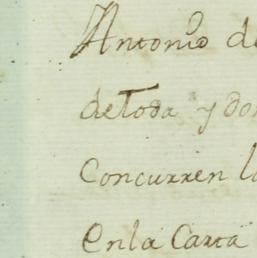 Antonio de
de Toda y do
Concurren l
en la Carta